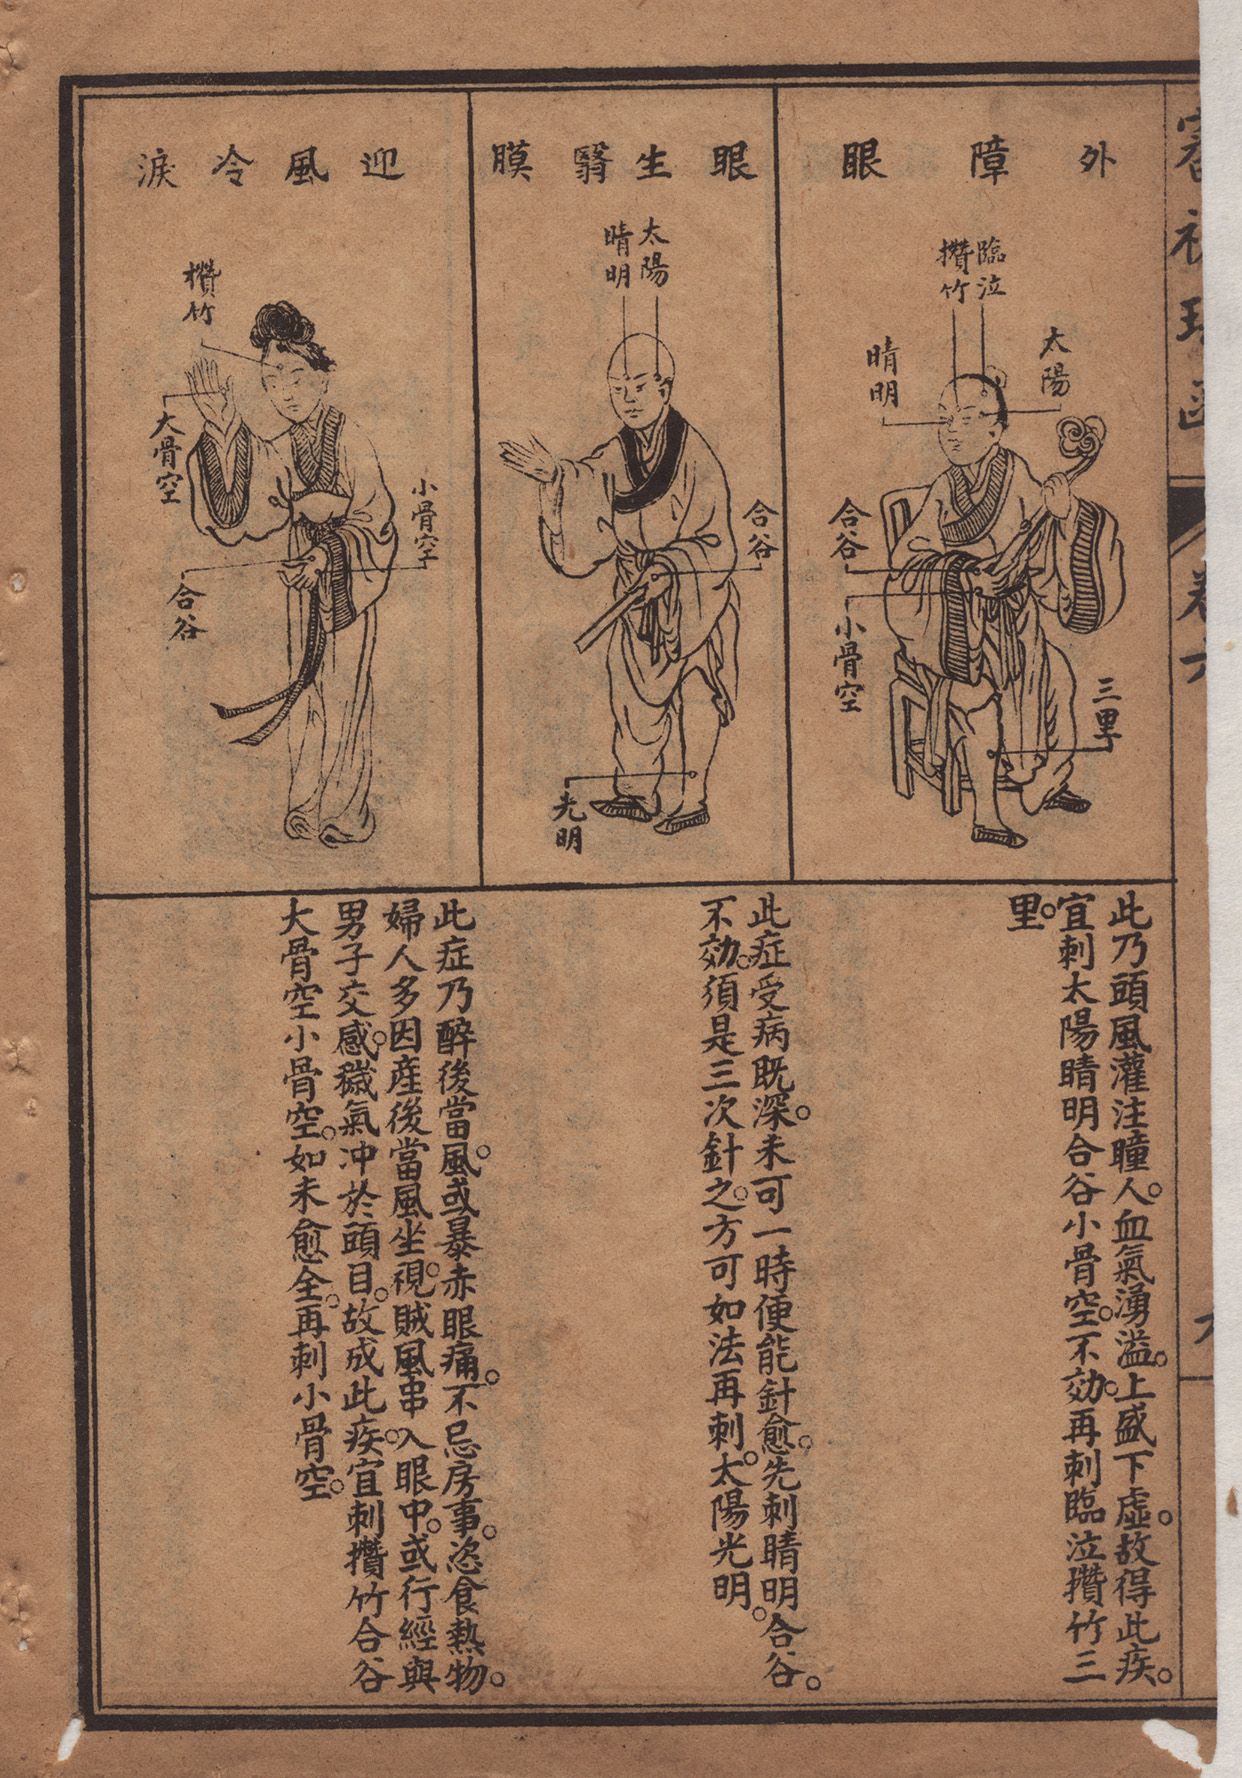 審視瑤函
卷六
外障眼
臨泣
攢竹
太陽
睛明
合谷
小骨空
三里
此乃頭風灌注瞳人。血氣湧溢。上盛下虛。故得此疾。
宜刺太陽睛明合谷小骨空。不効。再刺臨泣攢竹三
里。
眼生翳膜
太陽
睛明
合谷
光明
此症受病既深。未可一時便能針愈。先刺睛明合谷。
不効。須是三次針之。方可如法再刺。太陽光明。
迎風冷淚
攢竹
大骨空
小骨空
合谷
此症乃醉後當風。或暴赤眼痛。不忌房事。恣食熱物。
婦人多因産後當風坐視。賊風串入眼中。或行經與
男子交感。穢氣冲於頭目。故成此疾。宜刺攢竹合谷
大骨空小骨空。如未愈全。再刺小骨空。